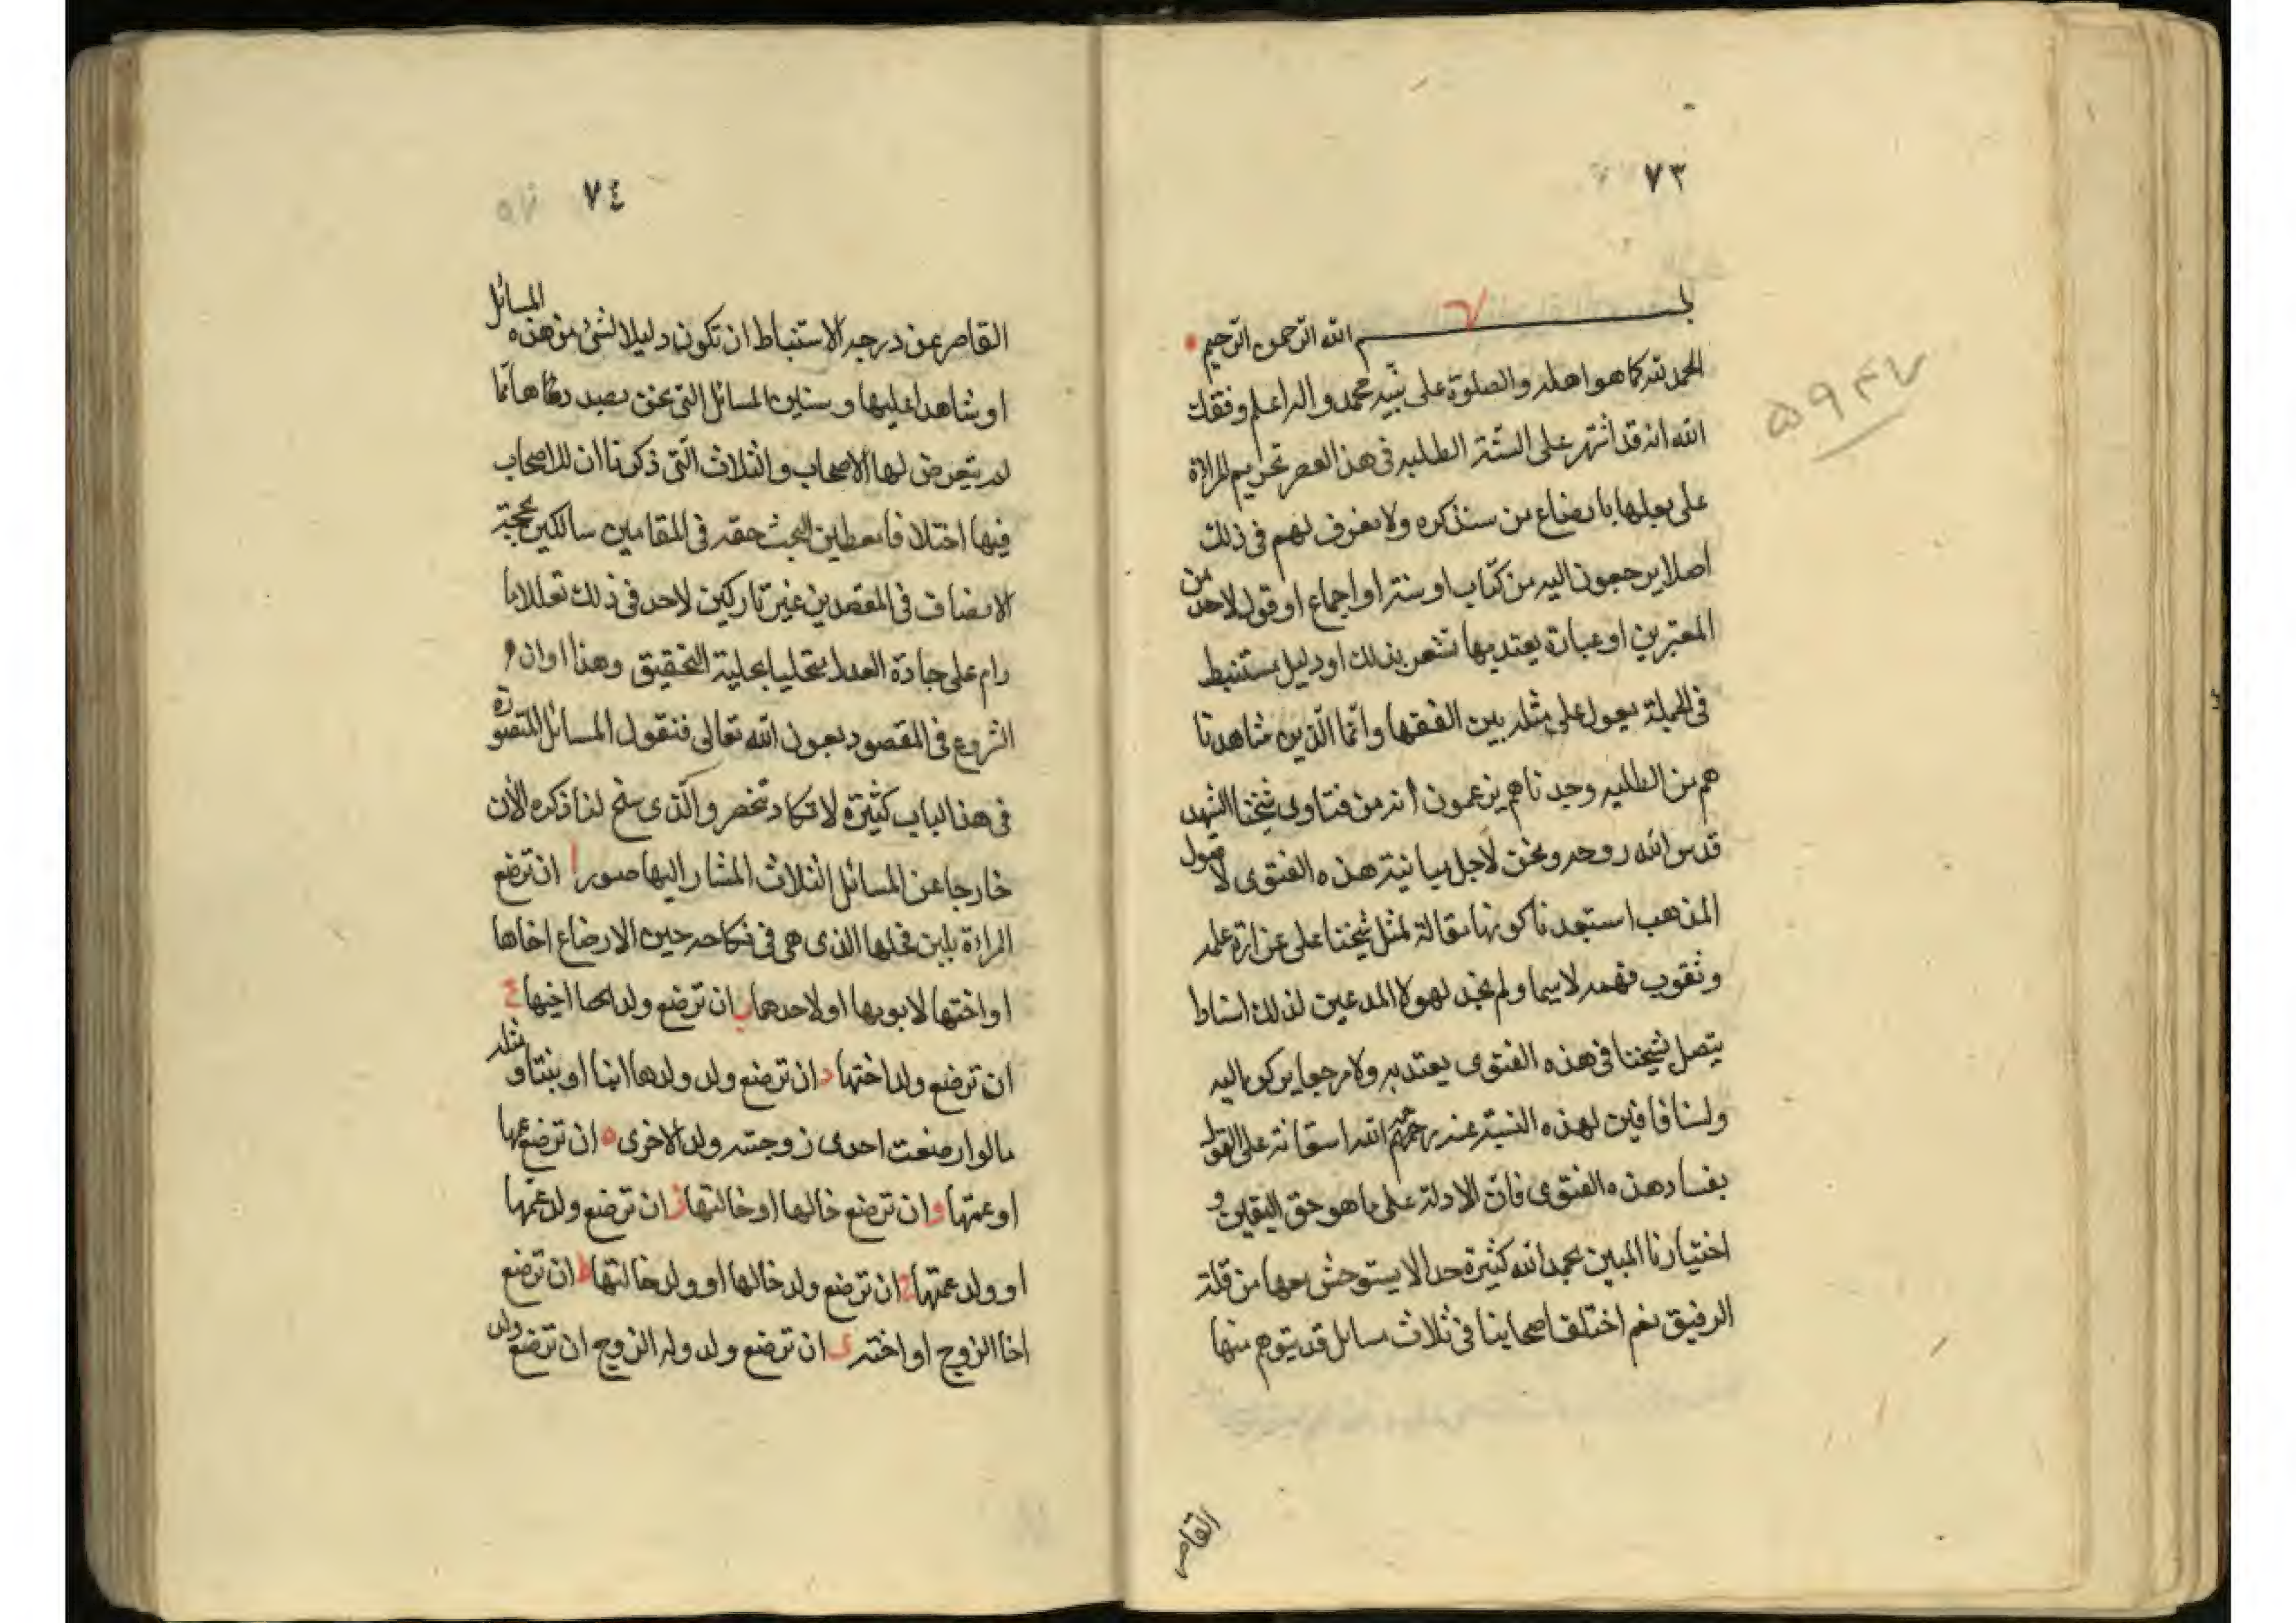 ٧٣
بسم الله الرحمن الرحيم
الحمد لله كما هو اهله والصلوة على نبيه محمد واله اعلم وفقك
الله انه قد اشتهر على السنة الطلبه فى هذا العصر تحريم المراة
على بعلها بارضاع من سنذكره ولا نعرف لهم فى ذلك
اصلا يرجعون اليه من كتاب او سنة او اجماع او قول لاحد من
المعتبرين او عبارة يعتد بها تشعر بذلك او دليل مستنبط
فى الجملة يعول على مثله بين الفقها وانما الذين شاهدنا
هم من الطلبه وجدناهم يزعمون انه من فتاوى شيخنا الشهيد
قدس الله روحه ونحن لاجل مباينة هذه الفتوى لاصول
المذهب استبعدنا كونها مقالة لمثل شيخنا على غزارة علمه
وثقوب فهمه لا سيما ولم نجد لهولا المدعين لذلك اسنادا
يتصل بشيخنا فى هذه الفتوى يعتد به ولا مرجعا يركن اليه
ولسنا نافين لهذه النسبة عنه رحمه الله استعانة على القول
بفساد هذه الفتوى فان الادلة على ما هو حق اليقين و
اختيارنا المبين بحمد الله كثيرة جدا لا يستوحش معها من قلة
الرفيق نعم اختلف اصحابنا فى ثلاث مسائل قد يتوهم منها
القاصر
٥٩٤٧
٧٤
القاصر عن درجه الاستنباط ان تكون دليلا لشئ من هذه المسائل
او شاهدا عليها وستاين المسائل التى نحن بصدد دفاها انما
لم يتعرض لها الاصحاب والثلاث التى ذكرنا ان للاصحاب
فيها اختلافا معطين البحث حقه فى المقامين سالكين محجة
الانصاف فى المقصدين غير تاركين لاحد فى ذلك تعللا ما
رام على جادة العدل متحليا بحلية التحقيق وهذا اوان
الشروع فى المقصود بعون الله تعالى فنقول المسائل المتصورة
فى هذا الباب كثيرة لا تكاد تنحصر والذى سنح لنا ذكره الأن
خارجا عن المسائل الثلاث المشار اليها صور ا ان ترضع
المراءة بلبن فحلها الذى هى فى نكاحه حين الارضاع اخاها
او اختها لابويها او لاحدهما ب ان ترضع ولد اخيها ج
ان ترضع ولد اختها د ان ترضع ولد ولدها ابنا او بنتا ومثله
ما لو ارضعت احدى زوجتيه ولد الاخرى ه ان ترضع عمها
او عمتها و ان ترضع خالها او خالتها ز ان ترضع ولد عمها
او ولد عمتها ح ان ترضع ولد خالها او ولد خالتها ط ان ترضع
اخا الزوج او اخته ى ان ترضع ولد ولد الزوج ان ترضع ولد